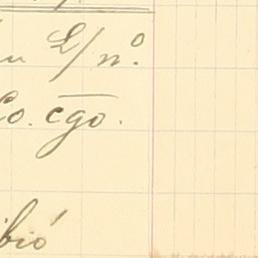 su L/ nº.
Co. cgo.
ibió